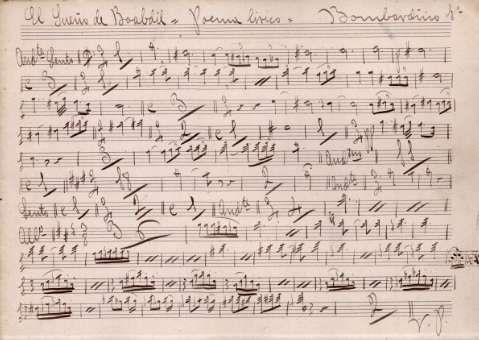 El Sueño de Boabdil = Poema lírico = Bombardino 1º
And.te Lento
And.te
Lento And.te
All.º
V. P.